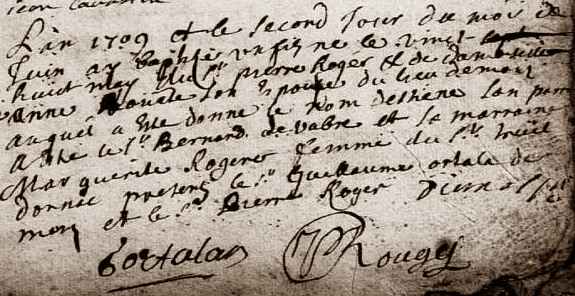 L'an 1709 et le second jour du mois de
Juin ay baptisé un fils né le vingt
huict may du Sr pierre Roger et de damoiselle
anne son Epouse du lieu de mon
auquel a esté donné le nom destiene son parr
a esté le Sr Bernard de vabre et sa marraine
Marguerite Rogere femme du Sr
donnée presens le Sr Guilhaume ortala de
mon et le Sr Pierre Roger
ortalan Rouges